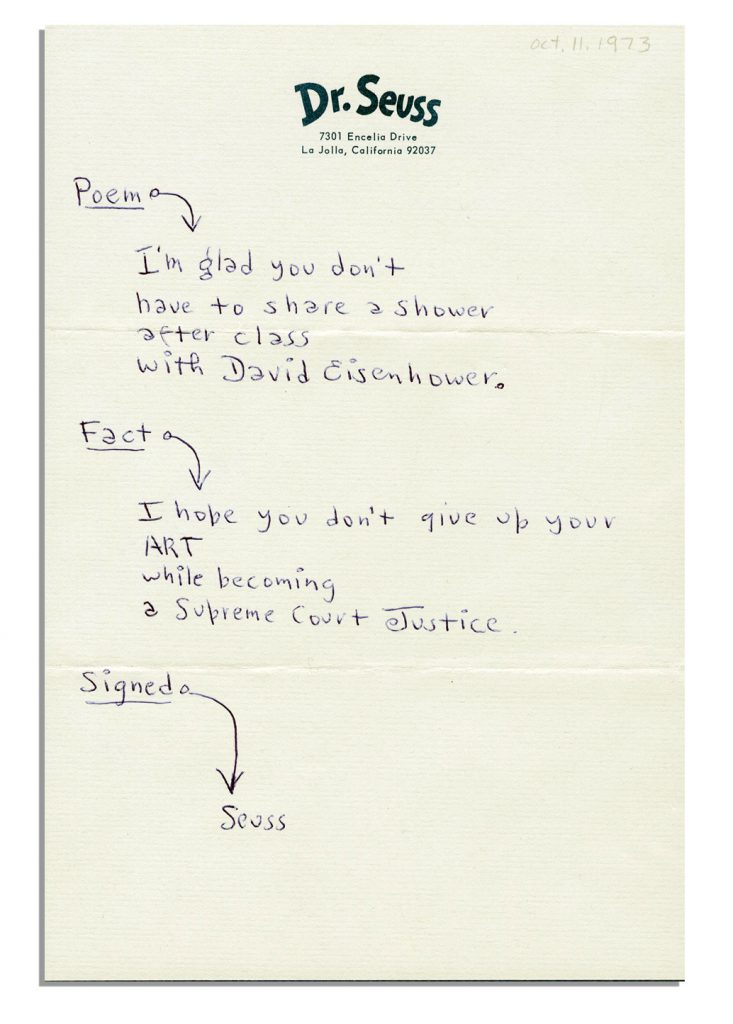 oct. 11. 1973
Dr. Seuss
7301 Encelia Drive
La Jolla, California 92037
Poem
I'm glad you don't
have to share a shower
after class
with David Eisenhower.
Fact
I hope you don't give up your
ART
while becoming
a Supreme Court Justice.
Signed
Seuss